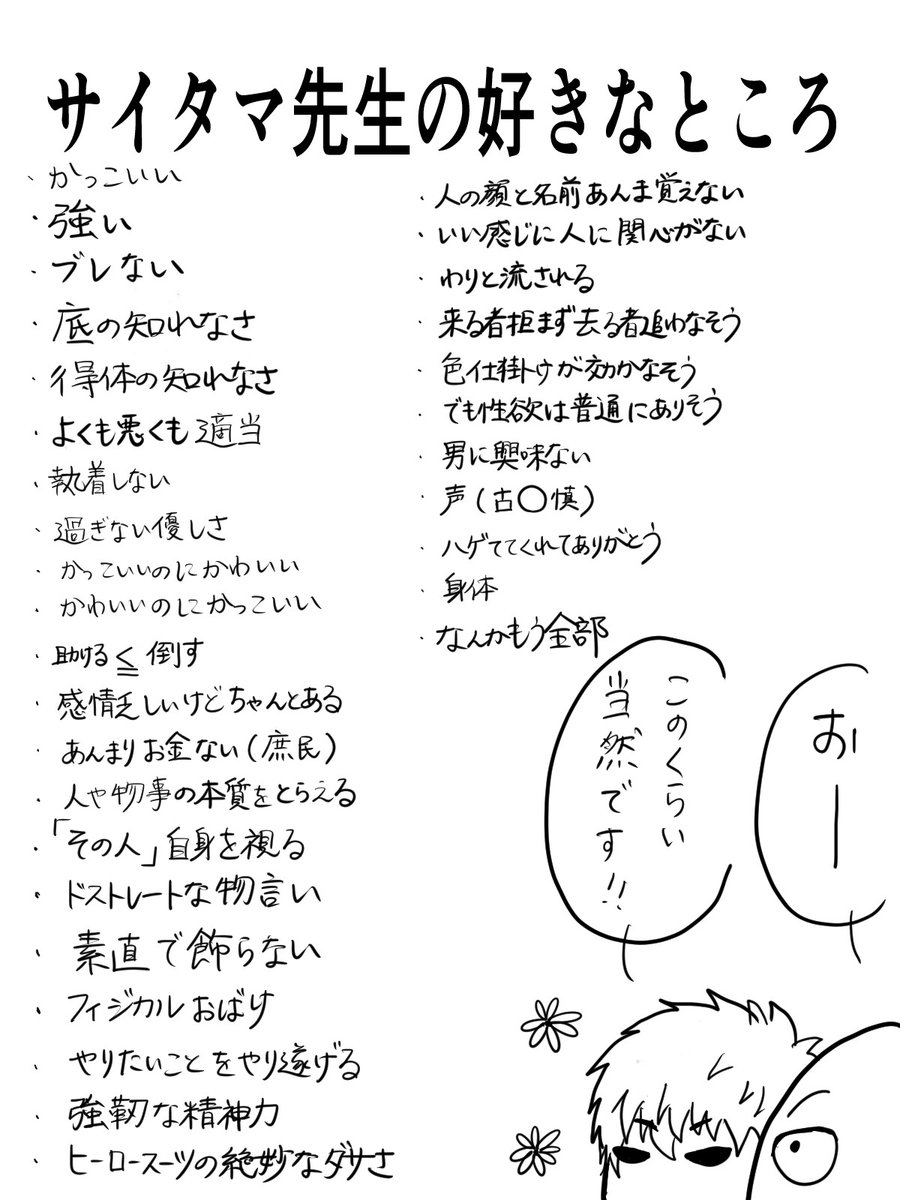 サイタマ先生の好きなところ
・かっこいい
・強い
・ブレない
・底の知れなさ
・得体の知れなさ
・よくも悪くも適当
・執着しない
・過ぎない優しさ
・かっていいのにかわいい
・かわいいのにかっこいい
・助ける≦倒す
・感情乏しいけどちゃんとある
・あんまりお金ない(庶民)
・人や物事の本質をとらえる
・「その人」自身を視る
・ドストレートな物言い
・素直で飾らない
・フィジカルおばけ
・やりたいことをやり遂げる
・強靭な精神力
・ヒーロースーツの絶妙なダサさ
・人の顔と名前あんま覚えない
・いい感じに人に関心がない
・わりと流される
・来る者拒まず去る者追わなそう
・色仕掛トウが効かなそう
・でも性欲は普通にありそう
・男に興味ない
・声(古〇慎)
・ハゲててくれてありがとう
・身体
・なんかもう全部
おー
このくらい
当然です!!